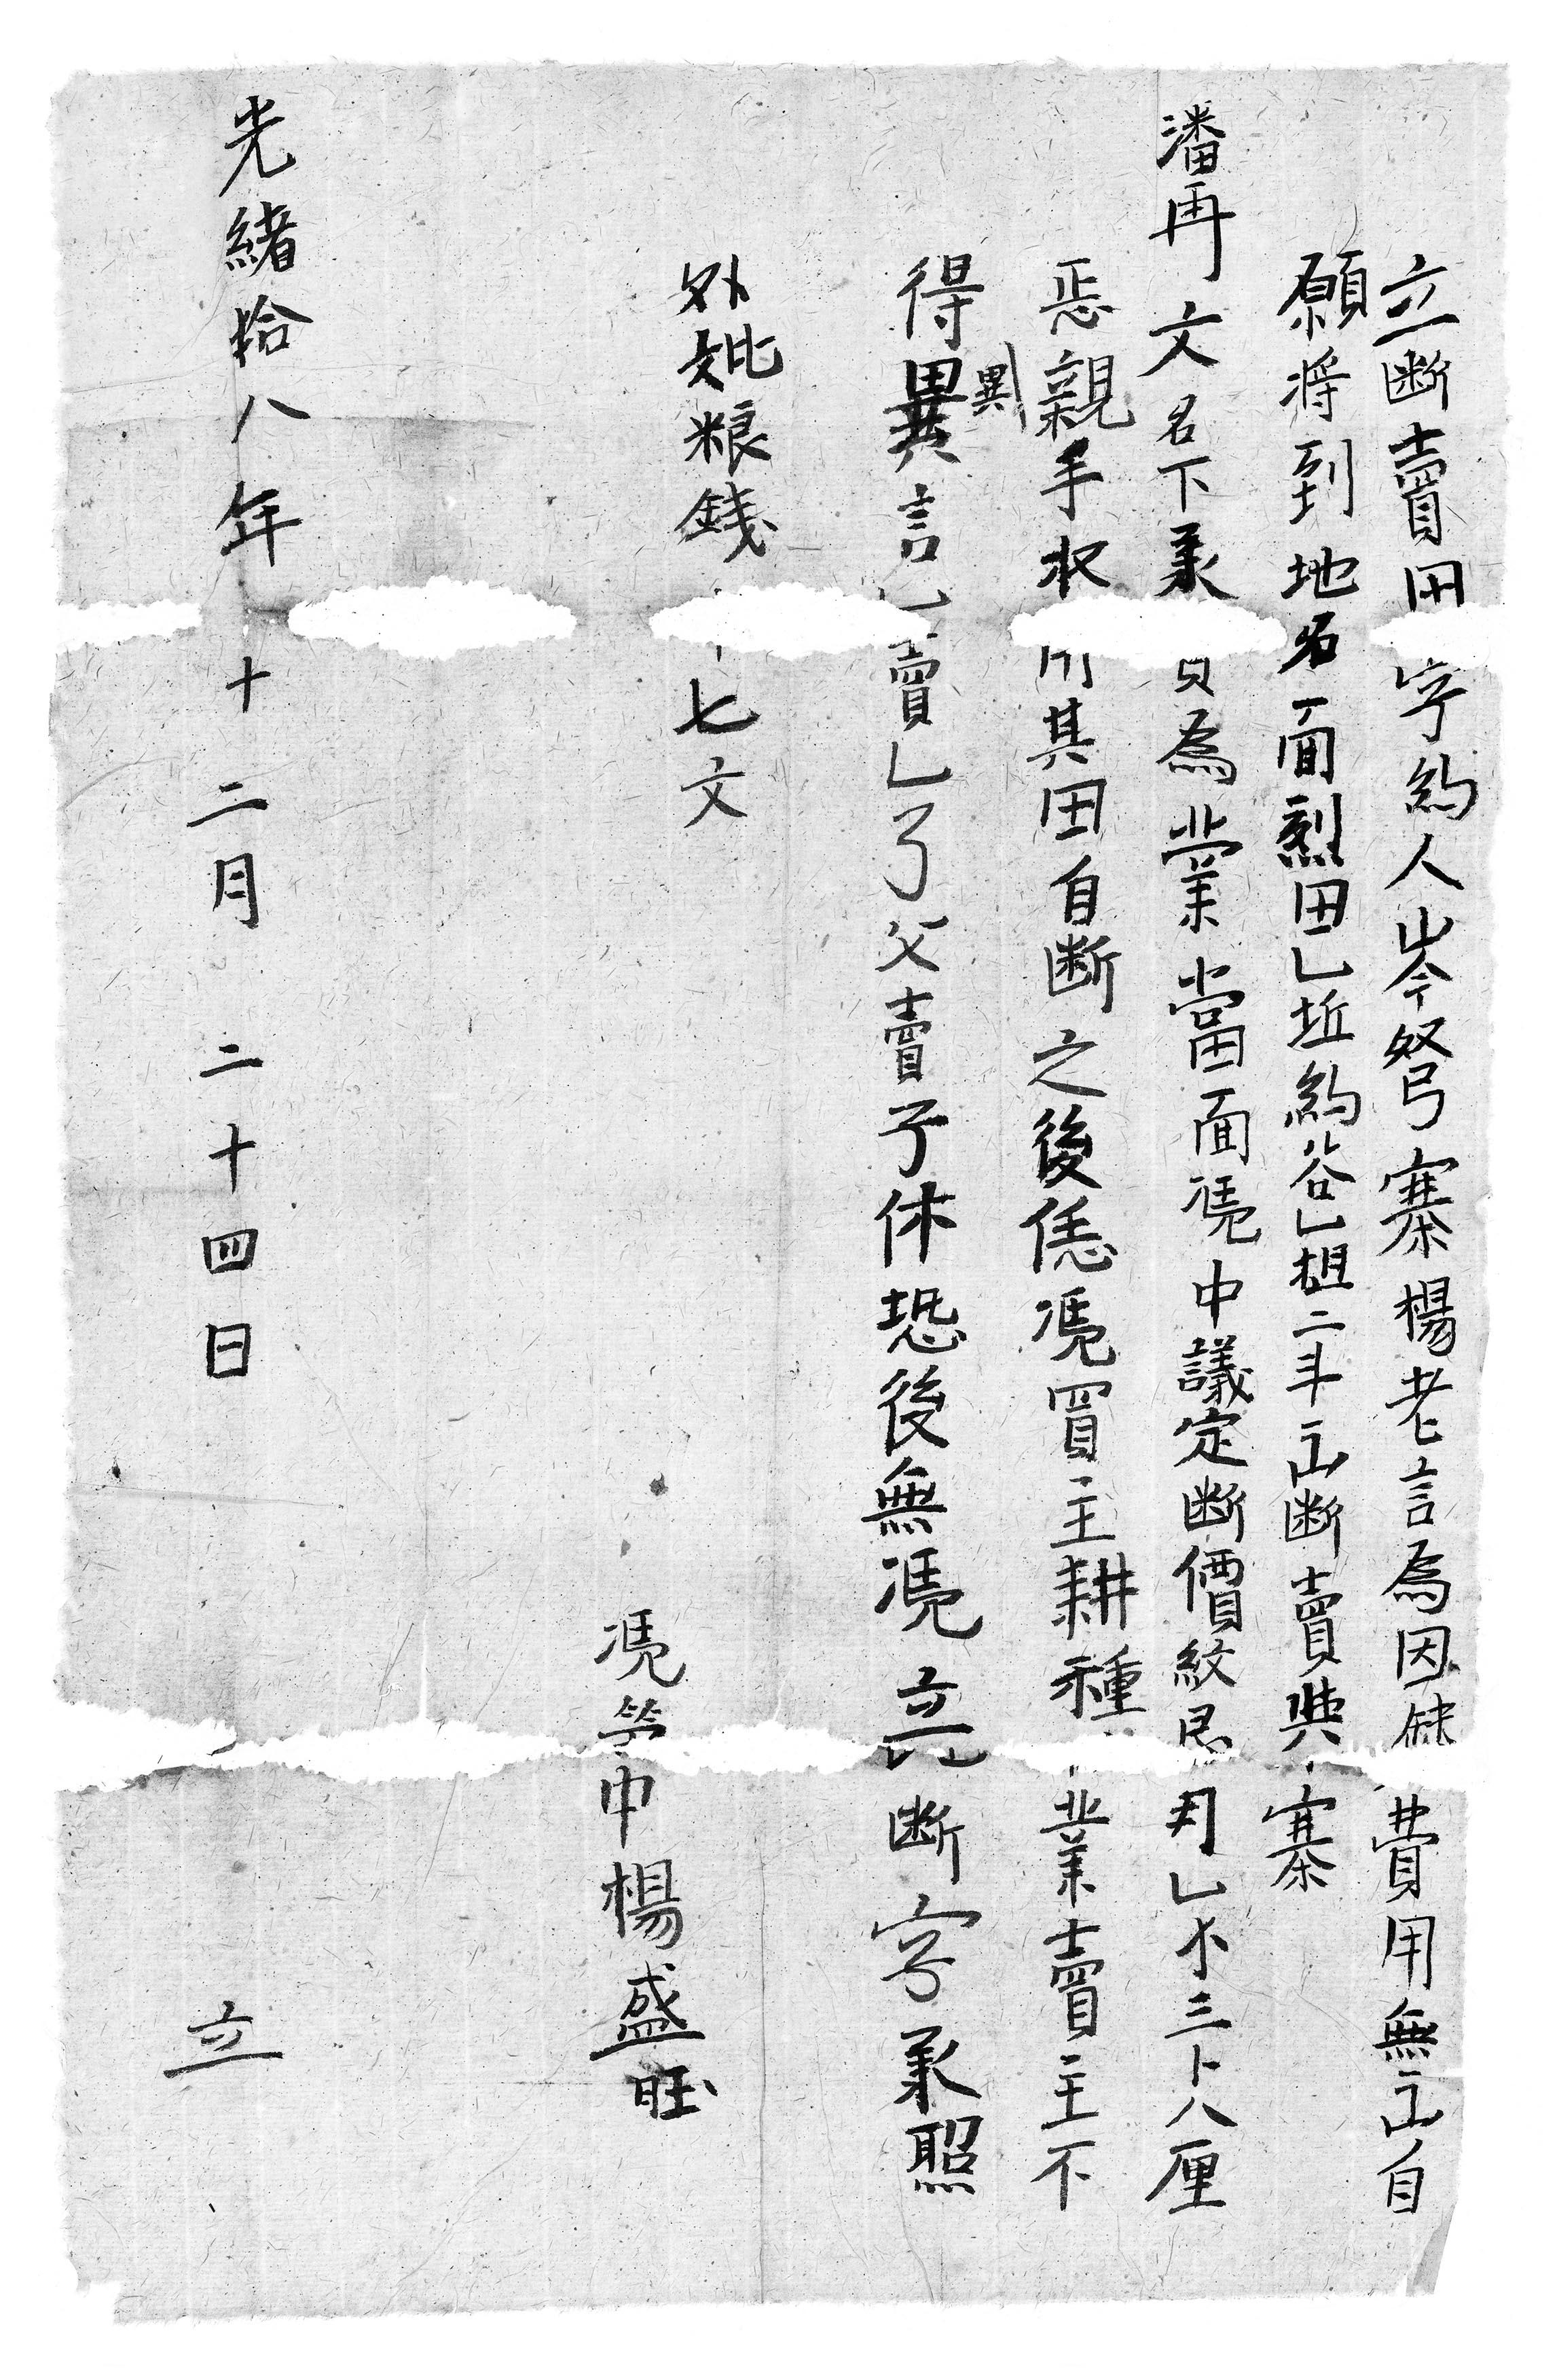 立断賣田字約人岑弩寨楊老言為因缺費用無出自
願将到地名面烈田乚坵約谷乚担二斗出断賣典寨
潘再文名下承買為業當面凴中議定断價紋艮月乚小三卜八厘
恁親手收用其田自断之後恁凴買主耕種業賣主不
得異言乚賣乚了父賣子休恐後無凴立断字承照
異
外妣粮錢七文
凴筆中楊盛旺
光緒拾八年十二月二十四日立